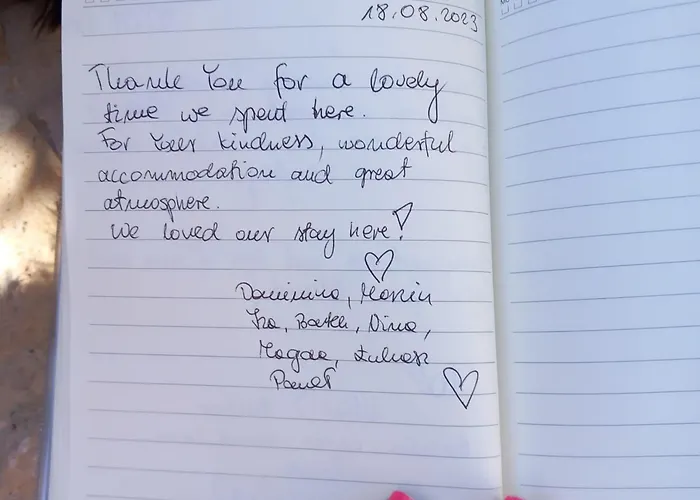 18.08.2023
Thank You for a lovely
time we spent here.
For Your kindness, wonderful
accommodation and great
atmosphere.
We loved our stay here!
Dominika, Marcin
Iza, Bartek, Nina,
Magda, Łukasz
Paweł